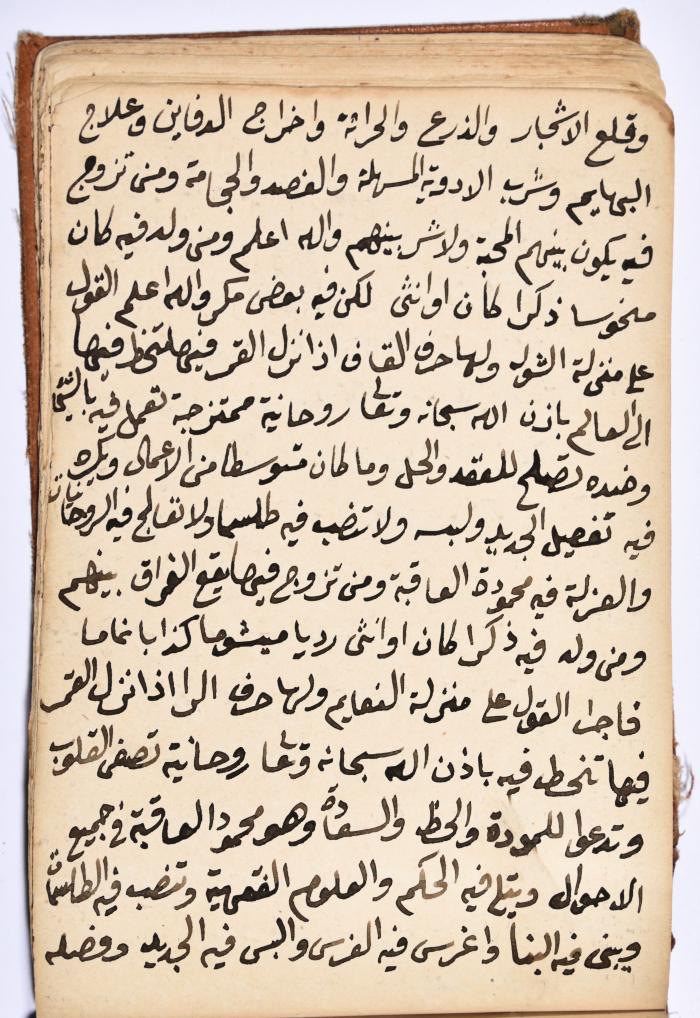 وقلع الاشجار والذرع والحراثة واخراج الدفاين وعلاج
البهايم وشرب الادوية المسهلة والفصد والحجامة ومن تزوج
فيه يكون بينهم المحبة ولاشر بينهم والله اعلم ومن ولد فيه كان
منحوسا ذكرا كان اوانثى لكن فيه بعض مكر والله اعلم القول
على منزلة الشوله ولها حرف القاف اذا نزل القمر فيها تنحط فيها
الى العالم باذن الله سبحانه وتعا روحانية ممتزجة تعمل فيه بالشي
وضده تصلح للعقد والحل وما كان متوسطا من الاعمال ويكره
فيه تفصيل الجديد ولبسه ولا تنصب فيه طلسما ولا تعالج فيه الروحانيات
والعزلة فيه محمودة العاقبة ومن تزوج فيها يقع الفراق بينهم
ومن ولد فيه ذكرا كان اوانثى رديا ميشوما كذابا نماما
فاجرا القول على منزلة النعايم ولها حرف الرا اذا نزل القمر
فيها تنحط فيه باذن الله سبحانه وتعا روحانية تصفى القلوب
وتدعوا للمودة والحظ والسعادة وهو محمود العاقبة في جميع
الاحوال ويتلى فيه الحكم والعلوم الفقهية وتنصب فيه الطلسمات
ويبنى فيه البنا واغرس فيه الغرس والبس فيه الجديد وفصله